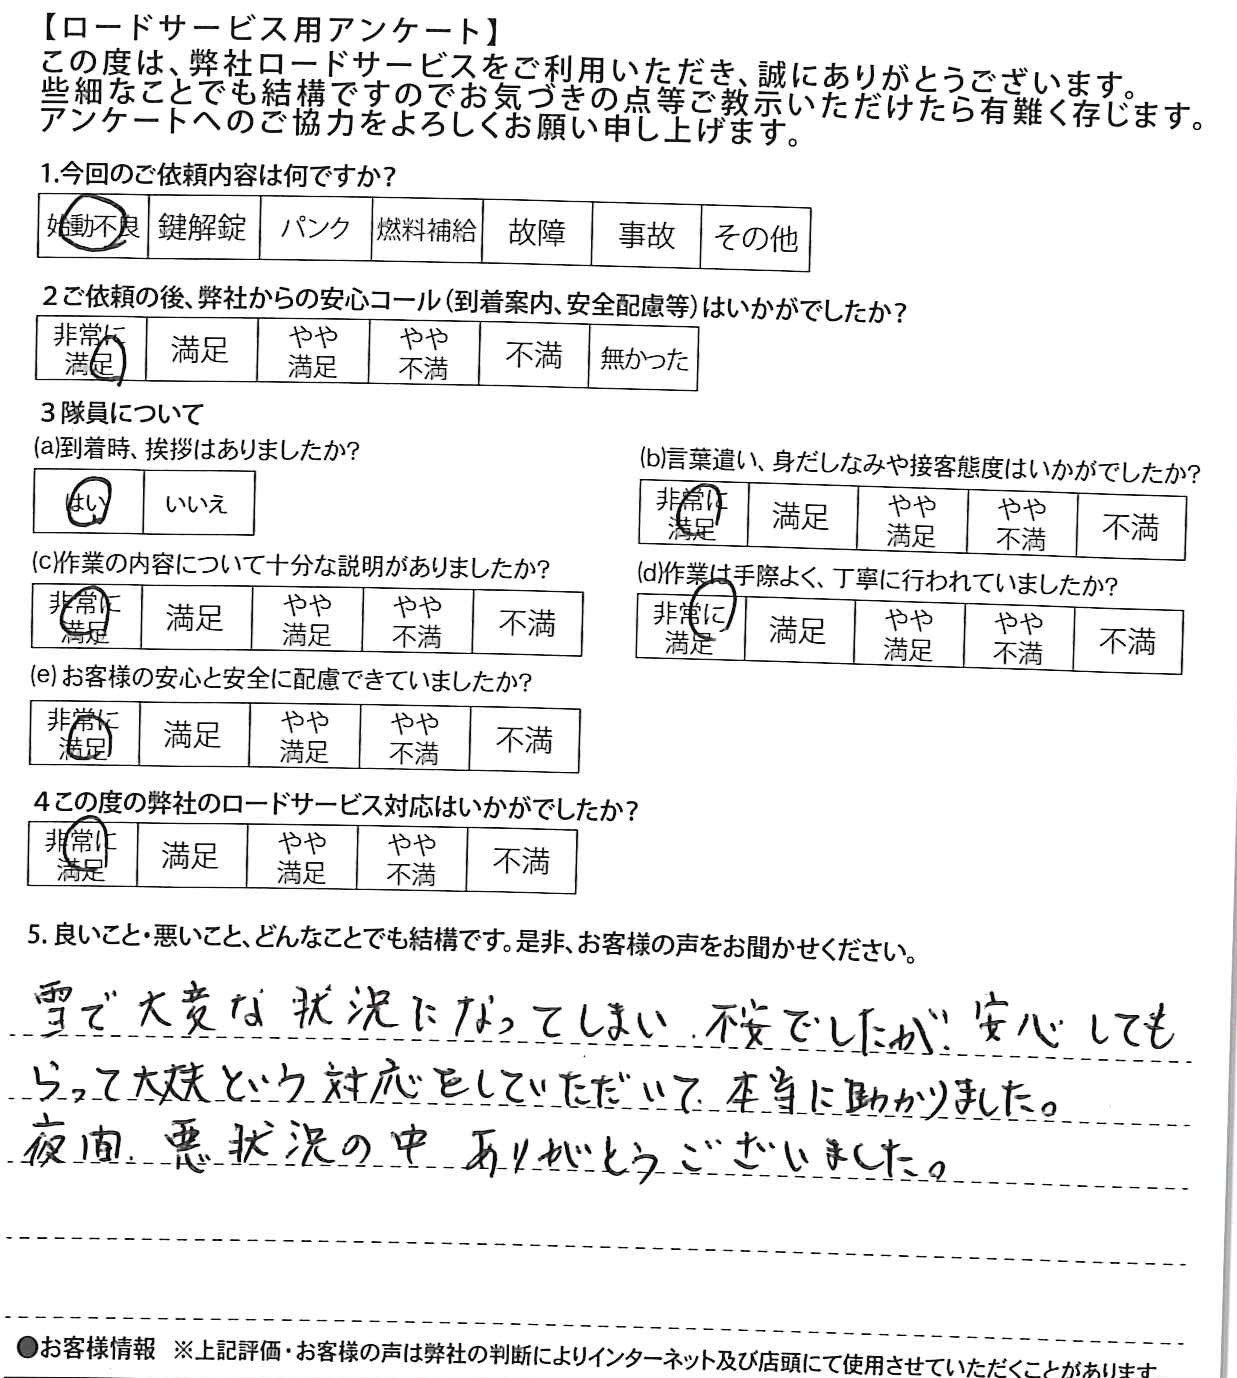 【ロードサービス用アンケート】
この度は、弊社ロードサービスをご利用いただき、誠にありがとうございます。
些細なことでも結構ですのでお気づきの点等ご教示いただけたら有難く存じます。
アンケートへのご協力をよろしくお願い申し上げます。
1.今回のご依頼内容は何ですか？
始動不良 鍵解錠 パンク 燃料補給 故障 事故 その他
２ご依頼の後、弊社からの安心コール（到着案内、安全配慮等）はいかがでしたか？
非常に満足 満足 やや満足 やや不満 不満 無かった
３隊員について
(a)到着時、挨拶はありましたか？
はい いいえ
(b)言葉遣い、身だしなみや接客態度はいかがでしたか？
非常に満足 満足 やや満足 やや不満 不満
(c)作業の内容について十分な説明がありましたか？
非常に満足 満足 やや満足 やや不満 不満
(d)作業は手際よく、丁寧に行われていましたか？
非常に満足 満足 やや満足 やや不満 不満
(e)お客様の安心と安全に配慮できていましたか？
非常に満足 満足 やや満足 やや不満 不満
４この度の弊社のロードサービス対応はいかがでしたか？
非常に満足 満足 やや満足 やや不満 不満
5. 良いこと・悪いこと、どんなことでも結構です。是非、お客様の声をお聞かせください。
雪で大変な状況になってしまい、不安でしたが、安心しても
らって大丈夫という対応をしていただいて、本当に助かりました。
夜間、悪状況の中 ありがとうございました。
●お客様情報 ※上記評価・お客様の声は弊社の判断によりインターネット及び店頭にて使用させていただくことがあります。